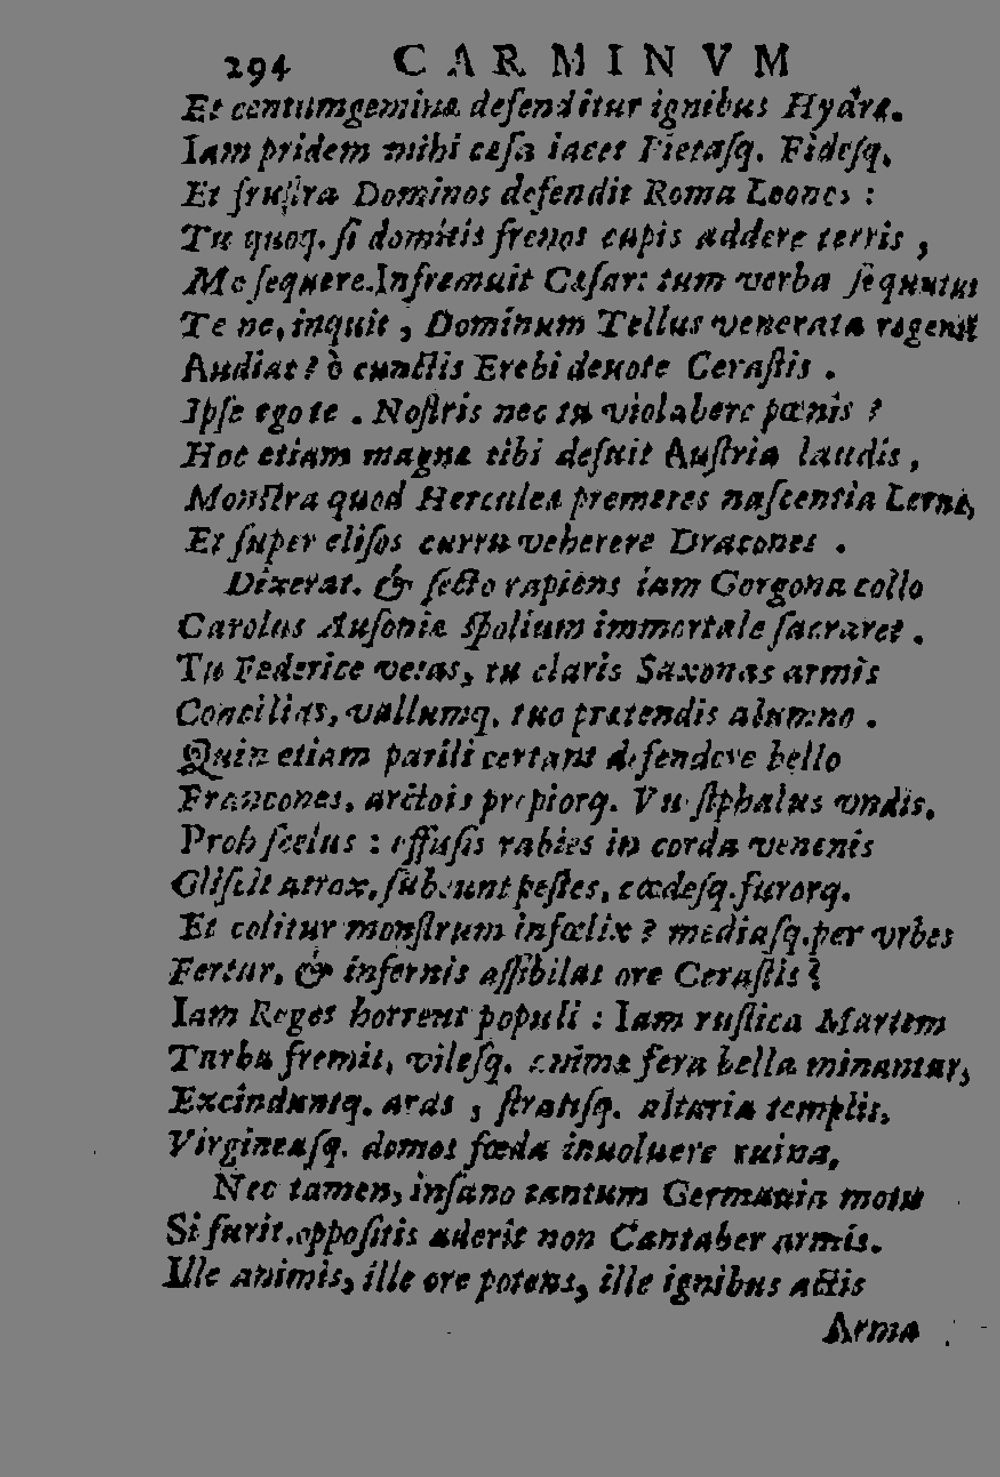 294 CARMINVM
Et centumgeminæ defenditur ignibus Hydræ.
Iam pridem mihi cæsa iacet Pietasq. Fidesq.
Et frustra Dominos defendit Roma Leones :
Tu quoq. si domitis frenos cupis addere terris ,
Me sequere. Infremuit Cæsar: tum verba sequutus
Te ne, inquit , Dominum Tellus venerata
Audiat? ò cunctis Erebi deuote Cerastis .
Ipse ego te . Nostris nec tu violabere pœnis ?
Hoc etiam magnæ tibi defuit Austria laudis ,
Monstra quod Herculea premeres nascentia Lerna,
Et super elisos curru veherere Dracones .
Dixerat. & secto rapiens iam Gorgona collo
Carolus Ausoniæ spolium immortale sacraret .
Tu Federice vetas, tu claris Saxonas armis
Concilias, vallumq. tuo prætendis alumno .
Quin etiam parili certant defendere bello
Francones, arctois propiorq. Vuestphalus vndis.
Proh scelus : effusis rabies in corda venenis
Gliscit atrox, subeunt pestes, cædesq. furorq.
Et colitur monstrum infœlix ? mediasq. per vrbes
Fertur, & infernis assibilat ore Cerastis ?
Iam Reges horrent populi : Iam rustica Martem
Turba fremit, vilesq. animæ fera bella minantur,
Excinduntq. aras , stratisq. altaria templis,
Virgineasq. domos fœda inuoluere ruina,
Nec tamen, insano tantum Germania motu
Si furit, oppositis aderit non Cantaber armis.
Ille animis, ille ore potens, ille ignibus actis
Arma